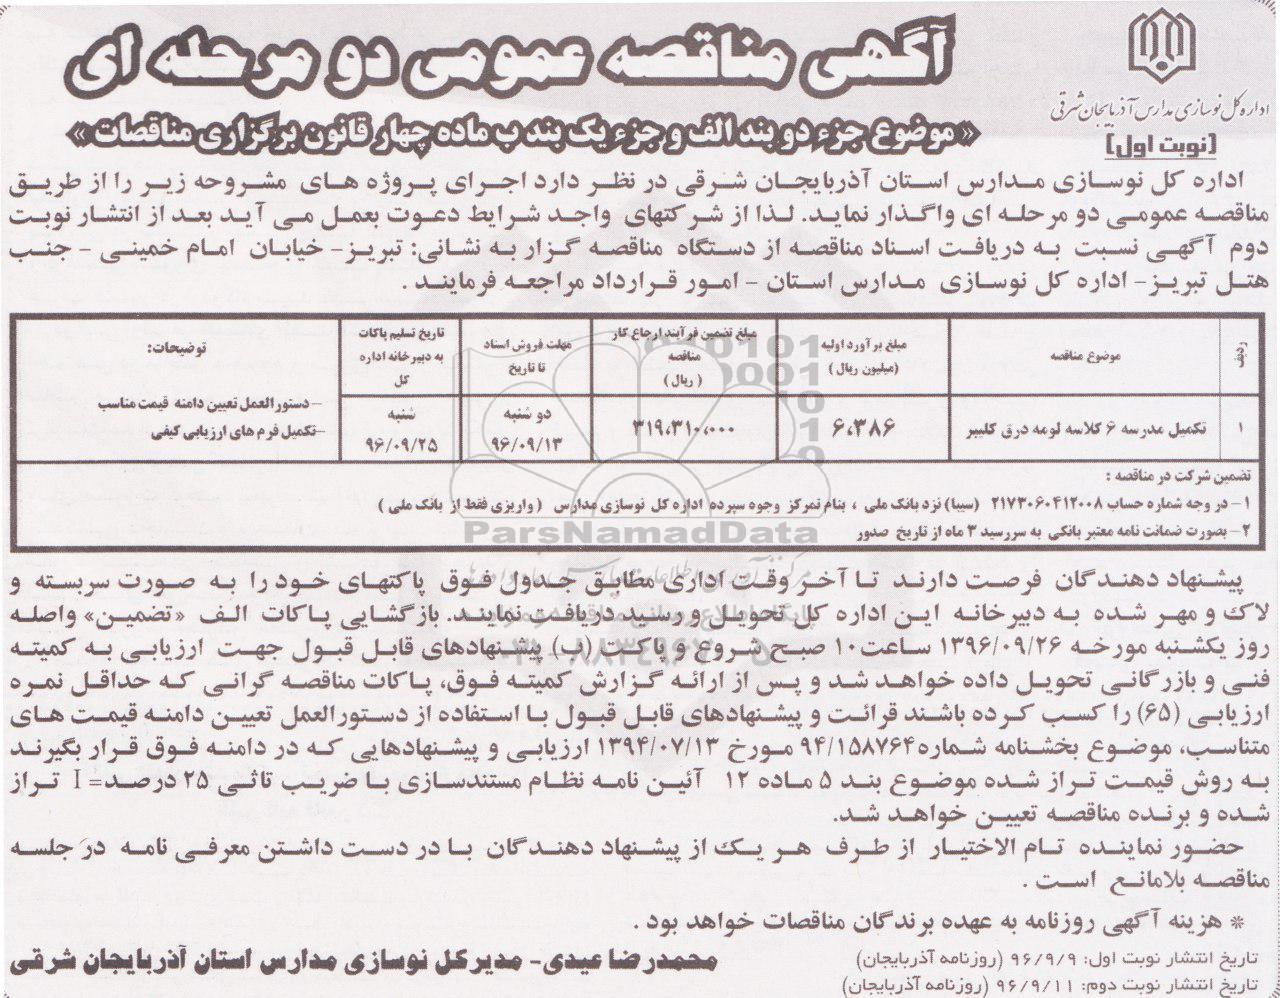 آگهی مناقصه عمومی دو مرحله ای
اداره کل نوسازی مدارس آذربایجان شرقی
« موضوع جزء دو بند الف و جزء یک بند ب ماده چهار قانون برگزاری مناقصات »
(نوبت اول)
اداره کل نوسازی مدارس استان آذربایجان شرقی در نظر دارد اجرای پروژه های مشروحه زیر را از طریق
مناقصه عمومی دو مرحله ای واگذار نماید. لذا از شرکتهای واجد شرایط دعوت بعمل می آید بعد از انتشار نوبت
دوم آگهی نسبت به دریافت اسناد مناقصه از دستگاه مناقصه گزار به نشانی: تبریز- خیابان امام خمینی - جنب
هتل تبریز- اداره کل نوسازی مدارس استان - امور قرارداد مراجعه فرمایند .
ردیف
موضوع مناقصه
مبلغ برآورد اولیه
(میلیون ریال)
مبلغ تضمین فرآیند ارجاع کار
مناقصه
( ریال )
مهلت فروش اسناد
تا تاریخ
تاریخ تسلیم پاکات
به دبیرخانه اداره
کل
توضیحات:
۱
تکمیل مدرسه ۶ کلاسه لومه درق کلیبر
۶،۳۸۶
۳۱۹،۳۱۰،۰۰۰
دو شنبه
۹۶/۰۹/۱۳
شنبه
۹۶/۰۹/۲۵
-دستورالعمل تعیین دامنه قیمت مناسب
-تکمیل فرم های ارزیابی کیفی
تضمین شرکت در مناقصه :
۱- در وجه شماره حساب ۲۱۷۳۰۶۰۴۱۲۰۰۸ (سیبا) نزد بانک ملی ، بنام تمرکز وجوه سپرده اداره کل نوسازی مدارس ( واریزی فقط از بانک ملی )
۲- بصورت ضمانت نامه معتبر بانکی به سررسید ۳ ماه از تاریخ صدور
ParsNamadData
پیشنهاد دهندگان فرصت دارند تا آخر وقت اداری مطابق جداول فوق پاکتهای خود را به صورت سربسته و
لاک و مهر شده به دبیرخانه این اداره کل تحویل و رسید دریافت نمایند. بازگشایی پاکات الف «تضمین» واصله
روز یکشنبه مورخه ۱۳۹۶/۰۹/۲۶ ساعت۱۰ صبح شروع و پاکت (ب) پیشنهادهای قابل قبول جهت ارزیابی به کمیته
فنی و بازرگانی تحویل داده خواهد شد و پس از ارائه گزارش کمیته فوق، پاکات مناقصه گرانی که حداقل نمره
ارزیابی (۶۵) را کسب کرده باشند قرائت و پیشنهادهای قابل قبول با استفاده از دستورالعمل تعیین دامنه قیمت های
متناسب، موضوع بخشنامه شماره۹۴/۱۵۸۷۶۴ مورخ ۱۳۹۴/۰۷/۱۳ ارزیابی و پیشنهادهایی که در دامنه فوق قرار بگیرند
به روش قیمت تراز شده موضوع بند ۵ ماده ۱۲ آئین نامه نظام مستندسازی با ضریب تاثی ۲۵ درصد= I تراز
شده و برنده مناقصه تعیین خواهد شد.
حضور نماینده تام الاختیار از طرف هر یک از پیشنهاد دهندگان با در دست داشتن معرفی نامه در جلسه
مناقصه بلامانع است .
* هزینه آگهی روزنامه به عهده برندگان مناقصات خواهد بود .
تاریخ انتشار نوبت اول: ۹۶/۹/۹ (روزنامه آذربایجان)
تاریخ انتشار نوبت دوم: ۹۶/۹/۱۱ (روزنامه آذربایجان)
محمدرضا عیدی- مدیرکل نوسازی مدارس استان آذربایجان شرقی